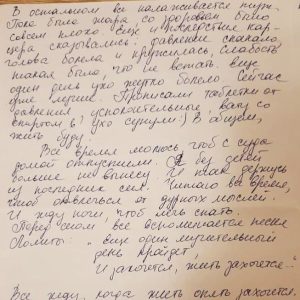 В остальном все налаживается
Пока была жара, со здоровьем было
совсем плохо. Еще и последствия кар-
цера сказывались: давление скакало,
голова болела и кружилась, слабость
такая была, что не встать. Еще
один день ухо жутко болело. Сейчас
уже лучше. Прописали таблетки от
давления, успокоительные, вату со
спиртом в ухо В общем,
жить буду.
Все время молюсь, чтоб с суда
домой отпустили. Я без детей
больше не вынесу. И так держусь
из последних сил. Читаю все время,
чтоб отвлечься от дурных мыслей.
И жду ночи, чтоб лечь спать.
Перед сном все вспоминается песня
Лолиты: "еще один мучительный
день пройдет,
И захочется, жить захочется..."
Все жду, когда жить опять захочется.